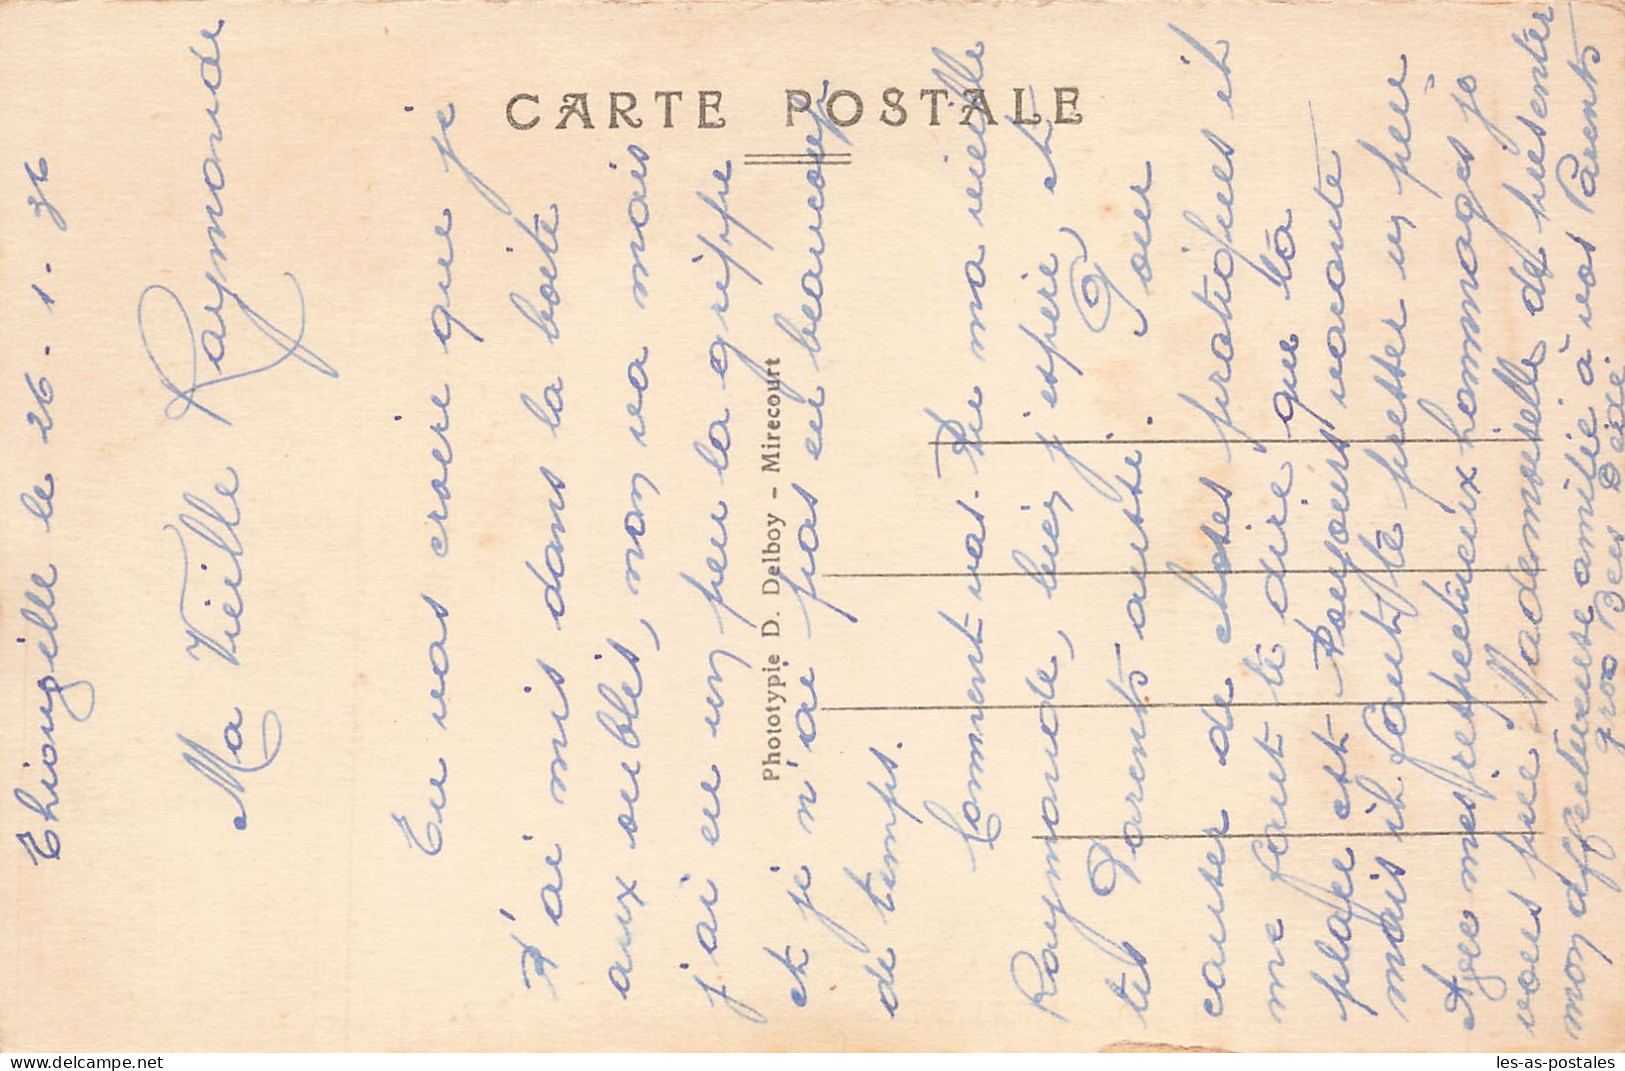 CARTE POSTALE
Phototypie D. Delboy - Mirecourt
le 26. 1. 36
Ma Vieille Raymonde
Tu vas croire que je
t'ai mis dans la boite
aux oublis, non va mais
j'ai eu un peu la grippe
et je n'ai pas eu beaucoup
de temps.
Comment vas-tu ma vieille
Raymonde, bien j'espère et
tes Parents aussi. Pour
causer de choses pratiques il
me faut te dire que la
place est toujours vacante
mais il faut se presser un peu
mes respectueux hommages je
vous prie Mademoiselle de présenter
mon affectueuse amitié à vos Parents
gros
www.delcampe.net
les-as-postales